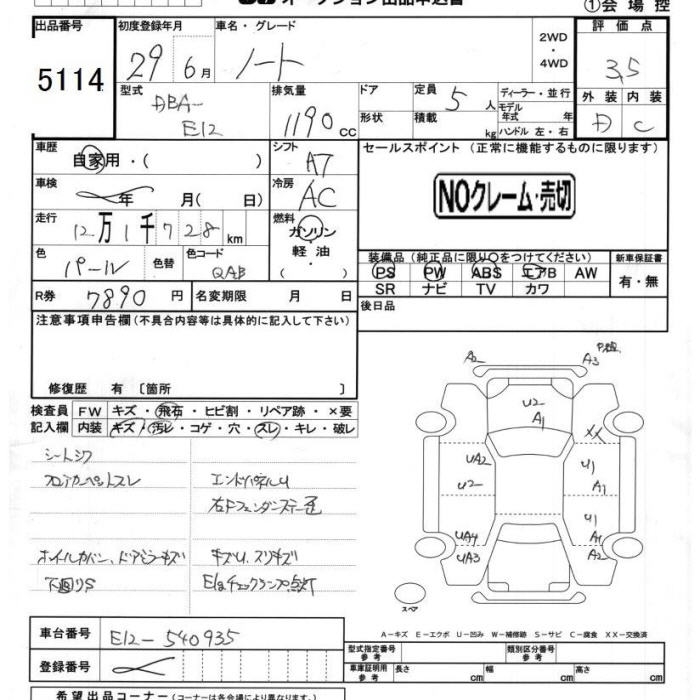 オークション出品申込書 ①会場控
出品番号 初度登録年月 車名・グレード 2WD・4WD 評価点
5114 29年6月 ノート 3.5
型式 DBA-E12 排気量 1190cc ドア 形状 定員 5人 積載 kg ディーラー・並行 モデル年式 年 ハンドル 左・右 外装 内装
D C
車歴 自家用・( ) シフト A7 セールスポイント (正常に機能するものに限ります)
車検 年 月(日) 冷房 AC NOクレーム・売切
走行 12万1千728km 燃料 ガソリン・軽油・( )
色 パール 色替 色コード QAB 装備品(純正品に限り○をつけてください) 新車保証書
PS PW ABS エアB AW 有・無
SR ナビ TV カワ
R券 7890円 名変期限 月 日 後日品
注意事項申告欄(不具合内容等は具体的に記入して下さい)
修復歴 有〔箇所 〕
検査員記入欄 FW キズ・飛石・ヒビ割・リペア跡・×要
内装 キズ・汚レ・コゲ・穴・スレ・キレ・破レ
シートシワ
フロアカーペットスレ エンドパネルU
右Fフェンダステー歪
ホイルカバー、ドアミラーキズ キズU、スリキズ
下廻りS E/gチェックランプ点灯
A2 A3
U2 A1
XX
UA2 U1
U2 A1
U1
UA4 A1
UA3 A2
スペア
A-キズ E-エクボ U-凹み W-補修跡 S-サビ C-腐食 XX-交換済
車台番号 E12-540935
登録番号
型式指定番号 参考 類別区分番号 参考
車庫証明用 参考 長さ cm 幅 cm 高さ cm
希望出品コーナー(コーナーは各会場により異なります。)